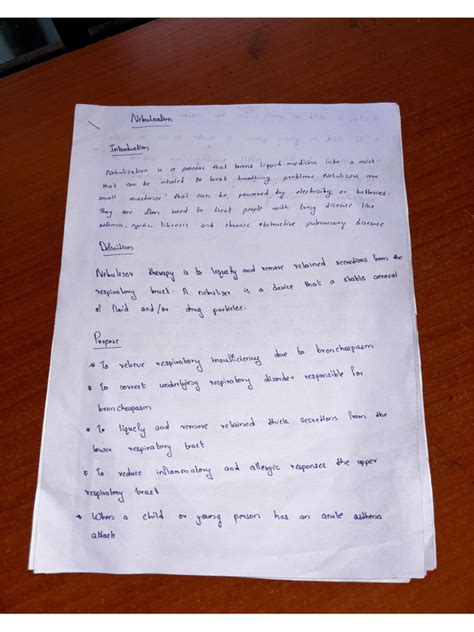 Nebulization
Introduction
Nebulization is a process that turns liquid medicine into a mist
that can be inhaled to treat breathing problems. Nebulizers are
small machines that can be powered by electricity or batteries.
They are often used to treat people with lung disease like
asthma, cystic fibrosis and chronic obstructive pulmonary disease
Definition
Nebulizer therapy is to liquefy and remove retained secretions from the
respiratory tract. A nebulizer is a device that a stable aerosol
of fluid and/or drug particles.
Purpose
To relieve respiratory insufficiency due to bronchospasm
To correct underlying respiratory disorder responsible for
bronchospasm
To liquefy and remove retained thick secretions from the
lower respiratory tract
To reduce inflammatory and allergic responses the upper
respiratory tract
When a child or young person has an acute asthma
attack